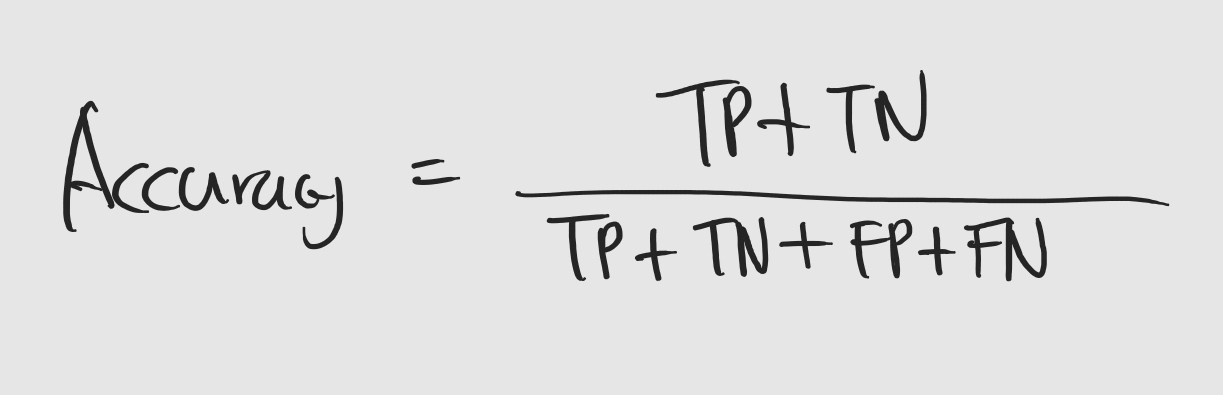 Accuracy = TP + TN
TP + TN + FP + FN